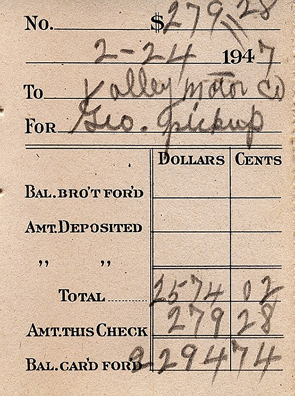 No. $279 28
2-24 1947
To Valley Motor Co
For Geo. pickup
Dollars Cents
Bal. Bro't For'd
Amt. Deposited
" "
Total........ 2574 02
Amt. This Check 279 28
Bal. Car'd For'd 2294 74